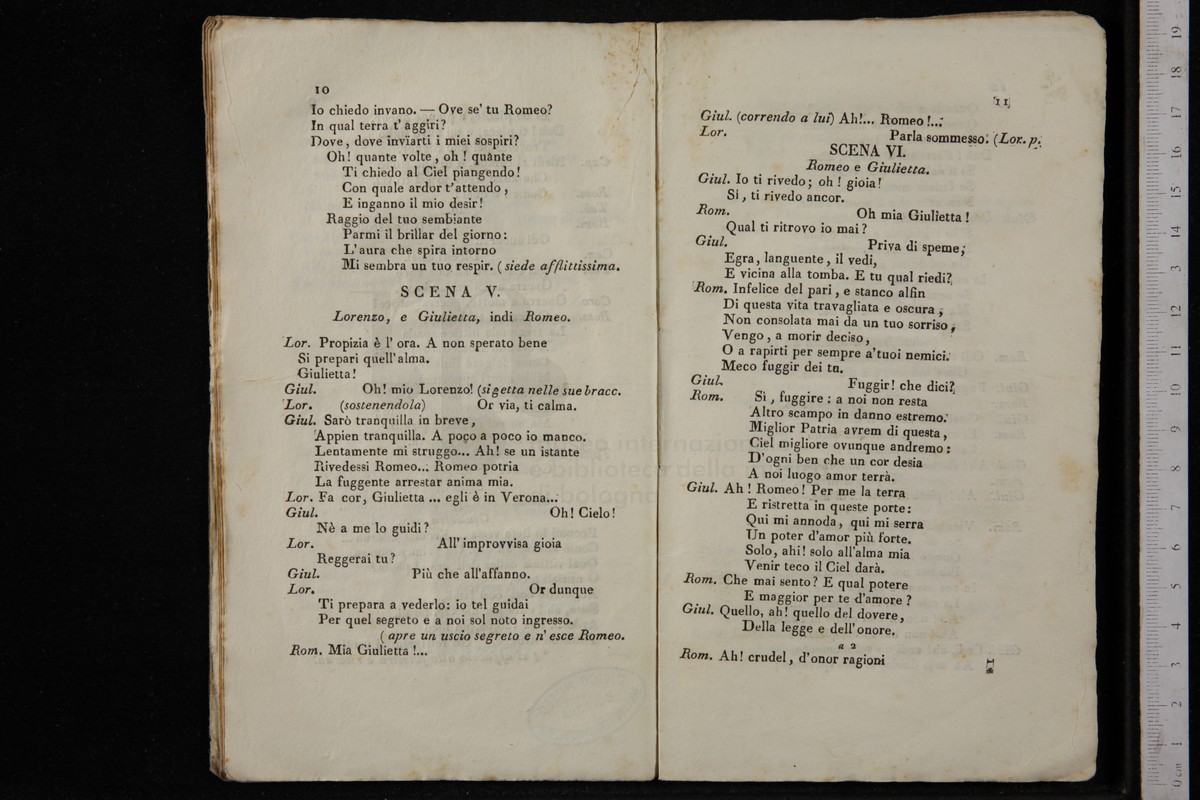 10
Io chiedo invano. — Ove se' tu Romeo?
In qual terra t' aggiri?
Dove, dove invïarti i miei sospiri?
Oh! quante volte, oh! quante
Ti chiedo al Ciel piangendo!
Con quale ardor t'attendo,
E inganno il mio desir!
Raggio del tuo sembiante
Parmi il brillar del giorno:
L'aura che spira intorno
Mi sembra un tuo respir. (siede afflittissima.
SCENA V.
Lorenzo, e Giulietta, indi Romeo.
Lor. Propizia è l' ora. A non sperato bene
Si prepari quell'alma.
Giulietta!
Giul. Oh! mio Lorenzo! (si getta nelle sue bracc.
Lor. (sostenendola) Or via, ti calma.
Giul. Sarò tranquilla in breve,
Appien tranquilla. A poco a poco io manco.
Lentamente mi struggo... Ah! se un istante
Rivedessi Romeo... Romeo potria
La fuggente arrestar anima mia.
Lor. Fa cor, Giulietta ... egli è in Verona...
Giul. Oh! Cielo!
Nè a me lo guidi?
Lor. All' improvvisa gioia
Reggerai tu?
Giul. Più che all'affanno.
Lor. Or dunque
Ti prepara a vederlo: io tel guidai
Per quel segreto e a noi sol noto ingresso.
(apre un uscio segreto e n' esce Romeo.
Rom. Mia Giulietta!...
11
Giul. (correndo a lui) Ah!... Romeo!...
Lor. Parla sommesso. (Lor. p.
SCENA VI.
Romeo e Giulietta.
Giul. Io ti rivedo; oh! gioia!
Si, ti rivedo ancor.
Rom. Oh mia Giulietta!
Qual ti ritrovo io mai?
Giul. Priva di speme,
Egra, languente, il vedi,
E vicina alla tomba. E tu qual riedi?
Rom. Infelice del pari, e stanco alfin
Di questa vita travagliata e oscura,
Non consolata mai da un tuo sorriso,
Vengo, a morir deciso,
O a rapirti per sempre a'tuoi nemici.
Meco fuggir dei tu.
Giul. Fuggir! che dici?
Rom. Sì, fuggire: a noi non resta
Altro scampo in danno estremo.
Miglior Patria avrem di questa,
Ciel migliore ovunque andremo:
D'ogni ben che un cor desia
A noi luogo amor terrà.
Giul. Ah! Romeo! Per me la terra
E ristretta in queste porte:
Qui mi annoda, qui mi serra
Un poter d'amor più forte.
Solo, ahi! solo all'alma mia
Venir teco il Ciel darà.
Rom. Che mai sento? E qual potere
E maggior per te d'amore?
Giul. Quello, ah! quello del dovere,
Della legge e dell'onore.
a 2
Rom. Ah! crudel, d'onor ragioni